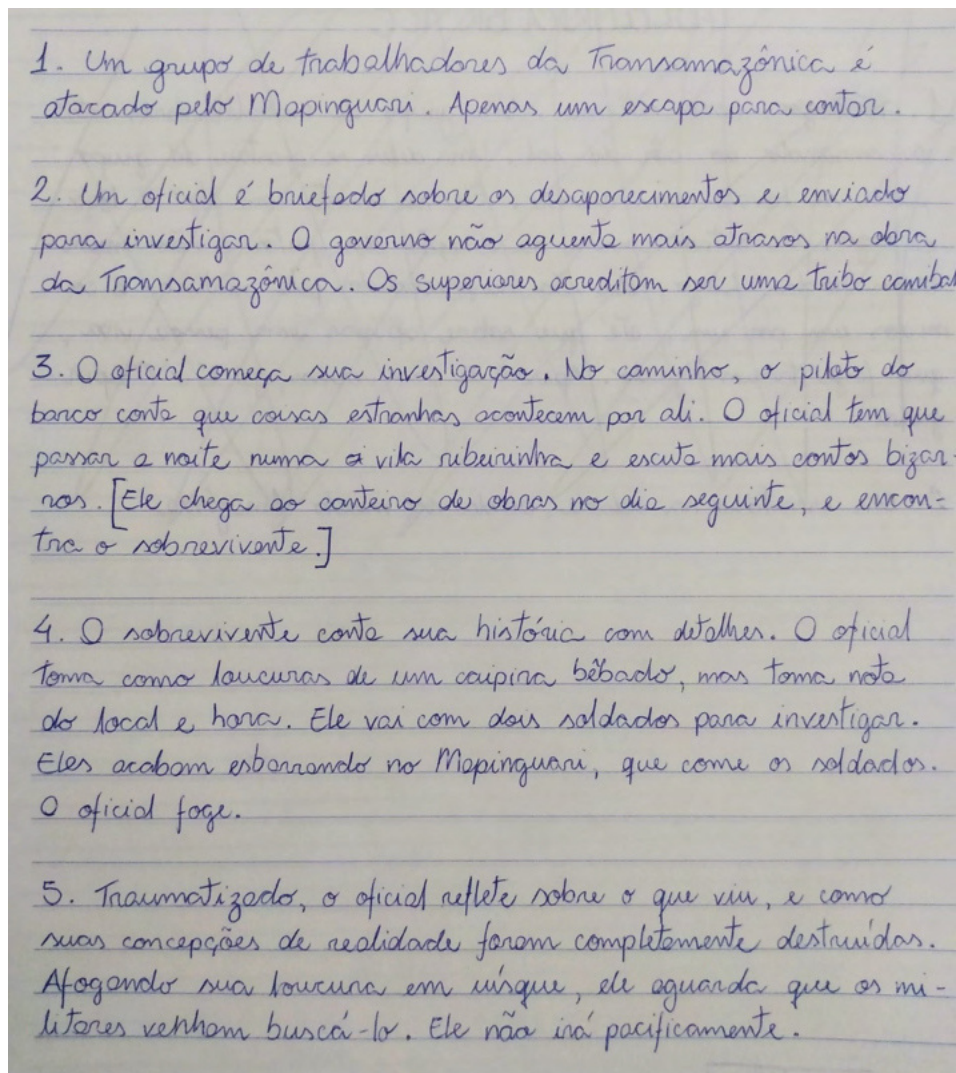 1. Um grupo de trabalhadores da Transamazônica é
atacado pelo Mapinguari. Apenas um escapa para contar.
2. Um oficial é briefado sobre os desaparecimentos e enviado
para investigar. O governo não aguenta mais atrasos na obra
da Transamazônica. Os superiores acreditam ser uma tribo canibal
3. O oficial começa sua investigação. No caminho, o piloto do
barco conta que coisas estranhas acontecem por ali. O oficial tem que
passar a noite numa vila ribeirinha e escuta mais contos bizar-
ros. [Ele chega ao canteiro de obras no dia seguinte, e encon-
tra o sobrevivente.]
4. O sobrevivente conta sua história com detalhes. O oficial
toma como loucuras de um caipira bêbado, mas toma nota
do local e hora. Ele vai com dois soldados para investigar.
Eles acabam esbarrando no Mapinguari, que come os soldados.
O oficial foge.
5. Traumatizado, o oficial reflete sobre o que viu, e como
suas concepções de realidade foram completamente destruídas.
Afogando sua loucura em uísque, ele aguarda que os mi-
litares venham buscá-lo. Ele não irá pacificamente.